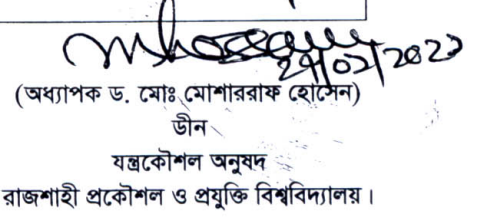 (অধ্যাপক ড. মোঃ মোশাররাফ হোসেন)
ডীন
যন্ত্রকৌশল অনুষদ
রাজশাহী প্রকৌশল ও প্রযুক্তি বিশ্ববিদ্যালয়।